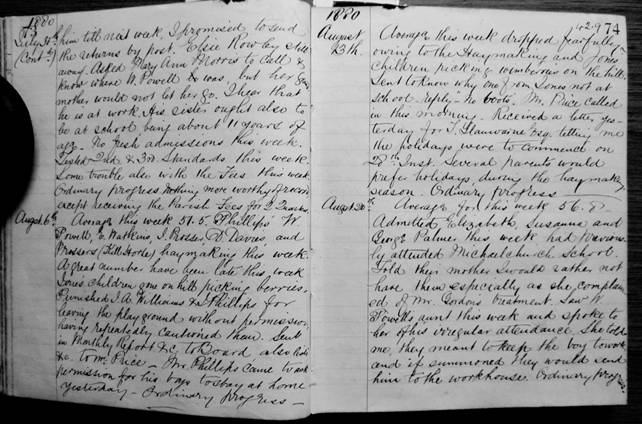 1880
July 30th
(Cont-d)
him till next week, I promised to send
the returns by post. Elsie Rowley still
away. Asked Mary Ann Morris to call &
know where W. Powell & was, but her
mother would not let her go. I hear that
he is at work. His sister ought also to
be at school being about 11 years of
age. No fresh admissions this week.
Tested 2nd & 3rd Standards this week
Some trouble also with the Fees this week
Ordinary progress nothing more worthy of record
except receiving the Parish Fees for
Augst 6th
Average this week 57.5. Phillips' W.
Powell, E. Watkins, J. Prosser, D. Davies, and
Prossers, haymaking this week.
A great number have been late this week
Jones children gone on hill picking berries.
Punished J. A. Williams & Phillips for
leaving the play ground without permission
having repeatedly cautioned them. Sent
in Monthly Report &c to Board, also
&c. to Mr. Price. Mr. Phillips came to ask
permission for his boys to stay at home
yesterday - Ordinary progress -
1880
74
August
13th.
Average this week dropped fearfully 42.9
owing to the Haymaking and Jones'
children picking wimberries on the hill.
Sent to know why one from Jones not at
school reply "no boots". Mr. Price called
in this morning. Received a letter yes-
terday for T. Llanwarne Esq. telling me
the holidays were to commence on
Inst. Several parents would
prefer holidays, during the haymaking
season. Ordinary progress
Augst 20th
Average for this week 56.8
Admitted Elizabeth, Susanna and
George Palmer this week had previous-
ly attended Michaelchurch School.
Told their mother I would rather not
have them especially as she complain
ed of Mr. Gordon's treatment. Saw W.
Powell's aunt this week and spoke to
her of his irregular attendance. She told
me, they meant to keep the boy to work
and if summoned they would send
him to the workhouse. Ordinary progress